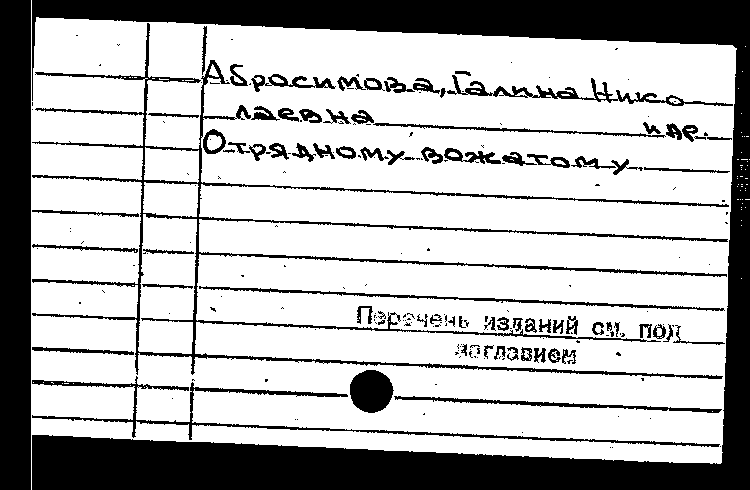 Абросимова, Галина Нико
лаевна и др.
Отрядному вожатому
Перечень изданий см. под
заглавием